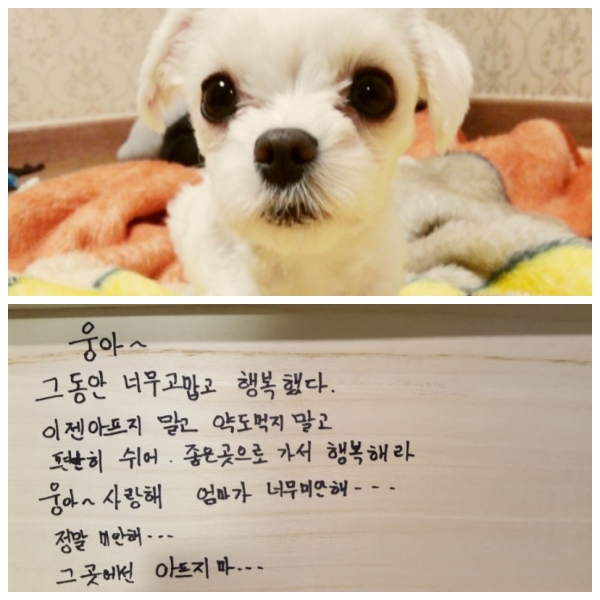 웅아~
그동안 너무고맙고 행복했다.
이젠아프지 말고 약도먹지 말고
편안히 쉬어. 좋은곳으로 가서 행복해라
웅아~ 사랑해 엄마가 너무미안해---
정말 미안해---
그곳에선 아프지마---